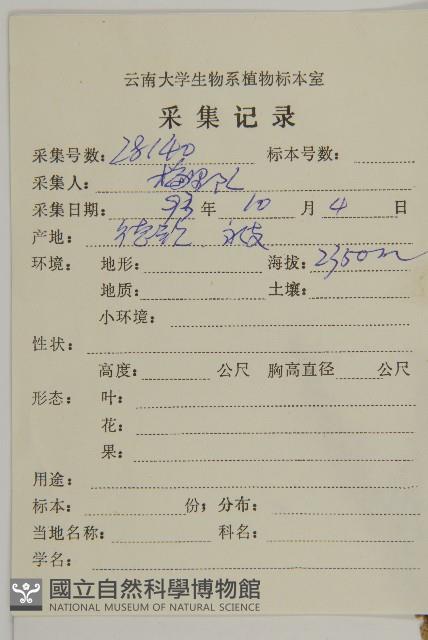 云南大学生物系植物标本室
采集记录
采集号数：28140 标本号数：
采集人：梅里队
采集日期：93年10月4日
产地：德钦 永支
环境：地形： 海拔：2350m
地质： 土壤：
小环境：
性状：
高度： 公尺 胸高直径 公尺
形态：叶：
花：
果：
用途：
标本： 份；分布：
当地名称： 科名：
学名：
國立自然科學博物館
NATIONAL MUSEUM OF NATURAL SCIENCE